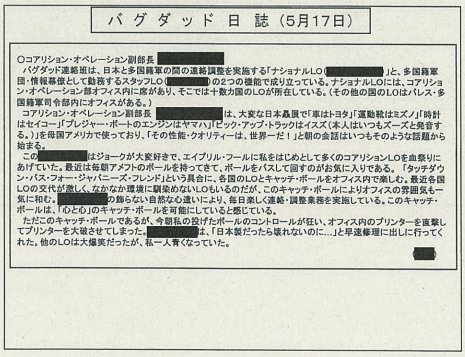 バグダッド日誌(5月17日)
○コアリション・オペレーション副部長
バグダッド連絡班は、日本と多国籍軍の間の連絡調整を実施する「ナショナルLO( )」と、多国籍軍
団・情報幕僚として勤務するスタッフLO( )の2つの機能で成り立っている。ナショナルLOには、コアリショ
ン・オペレーション部オフィス内に席があり、そこでは十数カ国のLOが所在している。(その他の国のLOはパレス・多
国籍軍司令部内にオフィスがある。)
コアリション・オペレーション副部長 は、大変な日本贔屓で「車はトヨタ」「運動靴はミズノ」「時計
はセイコー」「プレジャー・ボートのエンジンはヤマハ」「ピック・アップ・トラックはイスズ(本人はいつもズーズと発音す
る。)」を母国アメリカで使っており、「その性能・クオリティーは、世界一だ!」と朝の会話はいつもそのような話題から
始まる。
この はジョークが大変好きで、エイプリル・フールに私をはじめとして多くのコアリションLOを血祭りに
あげていた。最近は毎朝アメフトのボールを持ってきて、ボールをパスして回すのがお気に入りである。「タッチダウ
ン・パス・フォー・ジャパニーズ・フレンド」という具合に、各国のLOとキャッチ・ボールをオフィス内で楽しむ。最近各国
LOの交代が激しく、なかなか環境に馴染めないLOもいるのだが、このキャッチ・ボールによりオフィスの雰囲気も一
気に和む。 の飾らない自然な心遣いにより、毎日楽しく連絡・調整業務を実施している。このキャッチ・
ボールは、「心と心」のキャッチ・ボールを可能にしていると感じている。
ただこのキャッチ・ボールであるが、今朝私の投げたボールのコントロールが狂い、オフィス内のプリンターを直撃し
てプリンターを大破させてしまった。 は、「日本製だったら壊れないのに…」と早速修理に出しに行ってく
れた。他のLOは大爆笑だったが、私一人青くなっていた。